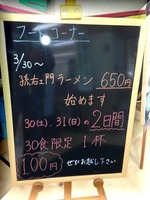 フードコーナー
3/30～
孫右ェ門ラーメン 650円
始めます
30(土).31(日)の2日間
30食限定 1杯
100円 ぜひお越し下さい